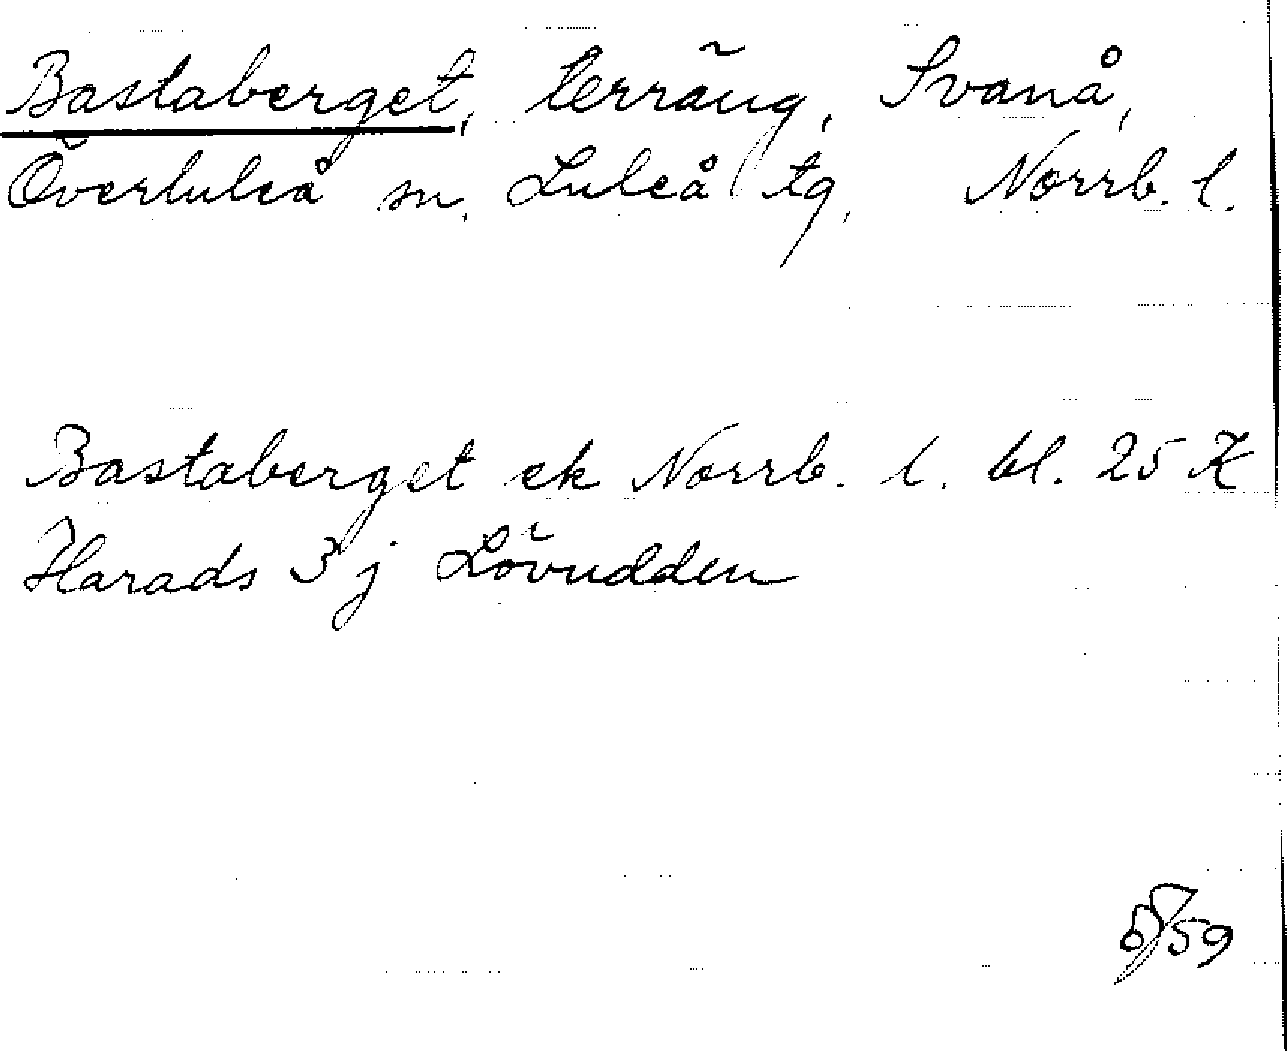 Bastaberget, terräng, Svanå,
Överluleå sn. Luleå tg. Norrb. l.
Bastaberget ek Norrb. l. bl. 25 K
Harads 3 j Lövudden